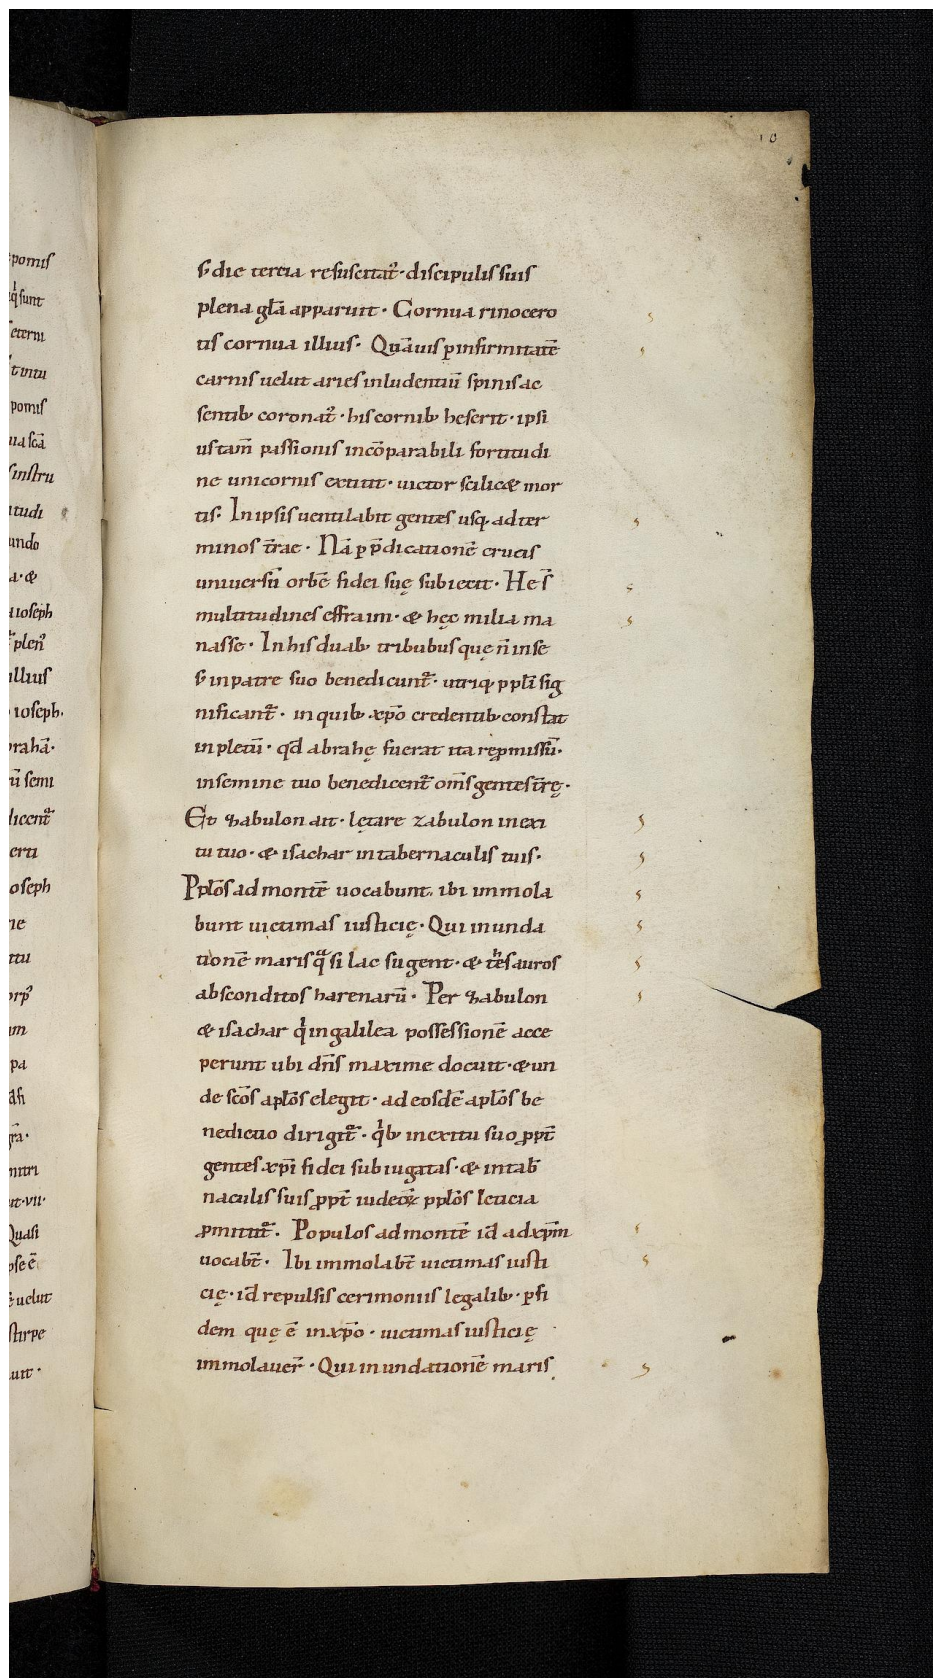 10
pomis
qͥ sunt
eterni
t intu
pomis
ua scā
instru
itudi
undo
a · &
a ioseph
plen᷒
illius
ioseph·
brahā·
ū semi
dicent᷑
erti
oseph
ne
ttu
orp᷒
im
pa
asi
gr̄a·
mitri
ut·vii·
Quasi
pse ē
ē uelut
stirpe
uit ·
s; die tercia resuscitat᷒ · discipulis suis
plena gl̄a apparuit · Cornua rinocero
tis cornua illius · Quāuis ꝑ infirmitatē
carnis uelut aries inludentiū spinis ac
sentib; coronat᷒ · his cornib; heserit · ipsi
us tam̄ passionis incōparabili fortitudi
ne unicornis extitit · uictor scilic& mor
tis· In ipsis uentilabit gentes usq; ad ter
minos t̄rae · Nā ꝑ p̄dicationē crucis
uniuersū orbē fidei suę subiecit · He s̄
multitudines effraim · & hęc milia ma
nasse · In his duab; tribubus quę n̄ in se
s; in patre suo benedicunt᷑ · utriq; ppl̄i sig
nificant᷑ · in quib; xp̄o credentib; constat
inpletū · qd̄ abrahę fuerat ita rep̄missū·
in semine tuo benedicent᷑ om̄s gentes t̄rę·
Et zabulon ait · lętare zabulon in exi
tu tuo · & isachar in tabernaculis tuis·
Pplōs ad montē uocabunt · ibi immola
bunt uictimas iusticię · Qui inunda
tionē maris qͣsi lac sugent · & thēsauros
absconditos harenarū · Per zabulon
& isachar qͥ in galilea possessionē acce
perunt ubi dn̄s maxime docuit · & un
de sc̄os aplōs elegit · ad eosdē aplōs be
nedictio dirigit᷑ · qͥb; in exitu suo ꝓpt̄
gentes xp̄i fidei subiugatas · & in tab̄
naculis suis ꝓpt̄ iudeoꝝ pplōs leticia
ꝓmittit᷑ · Populos ad montē id̄ ad xp̄m
uocabt̄ · Ibi immolabt̄ uictimas iusti
cię · id̄ repulsis cerimoniis legalib; · ꝑ fi
dem quę ē in xp̄o · uictimas iusticię
immolauer̄ · Qui inundationē maris